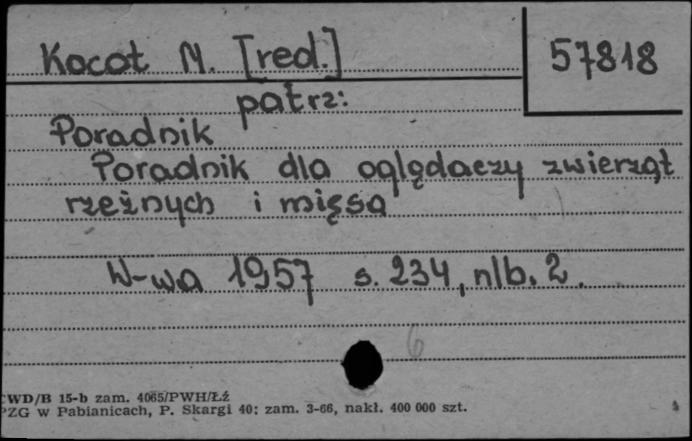 Kocot M. [red.] 57818
patrz:
Poradnik
Poradnik dla oglądaczy zwierząt
rzeźnych i mięsa
W-wa 1957 s. 234, nlb. 2.
6
CWD/B 15-b zam. 4065/PWH/Łź
PZG w Pabianicach, P. Skargi 40: zam. 3-66, nakł. 400 000 szt.